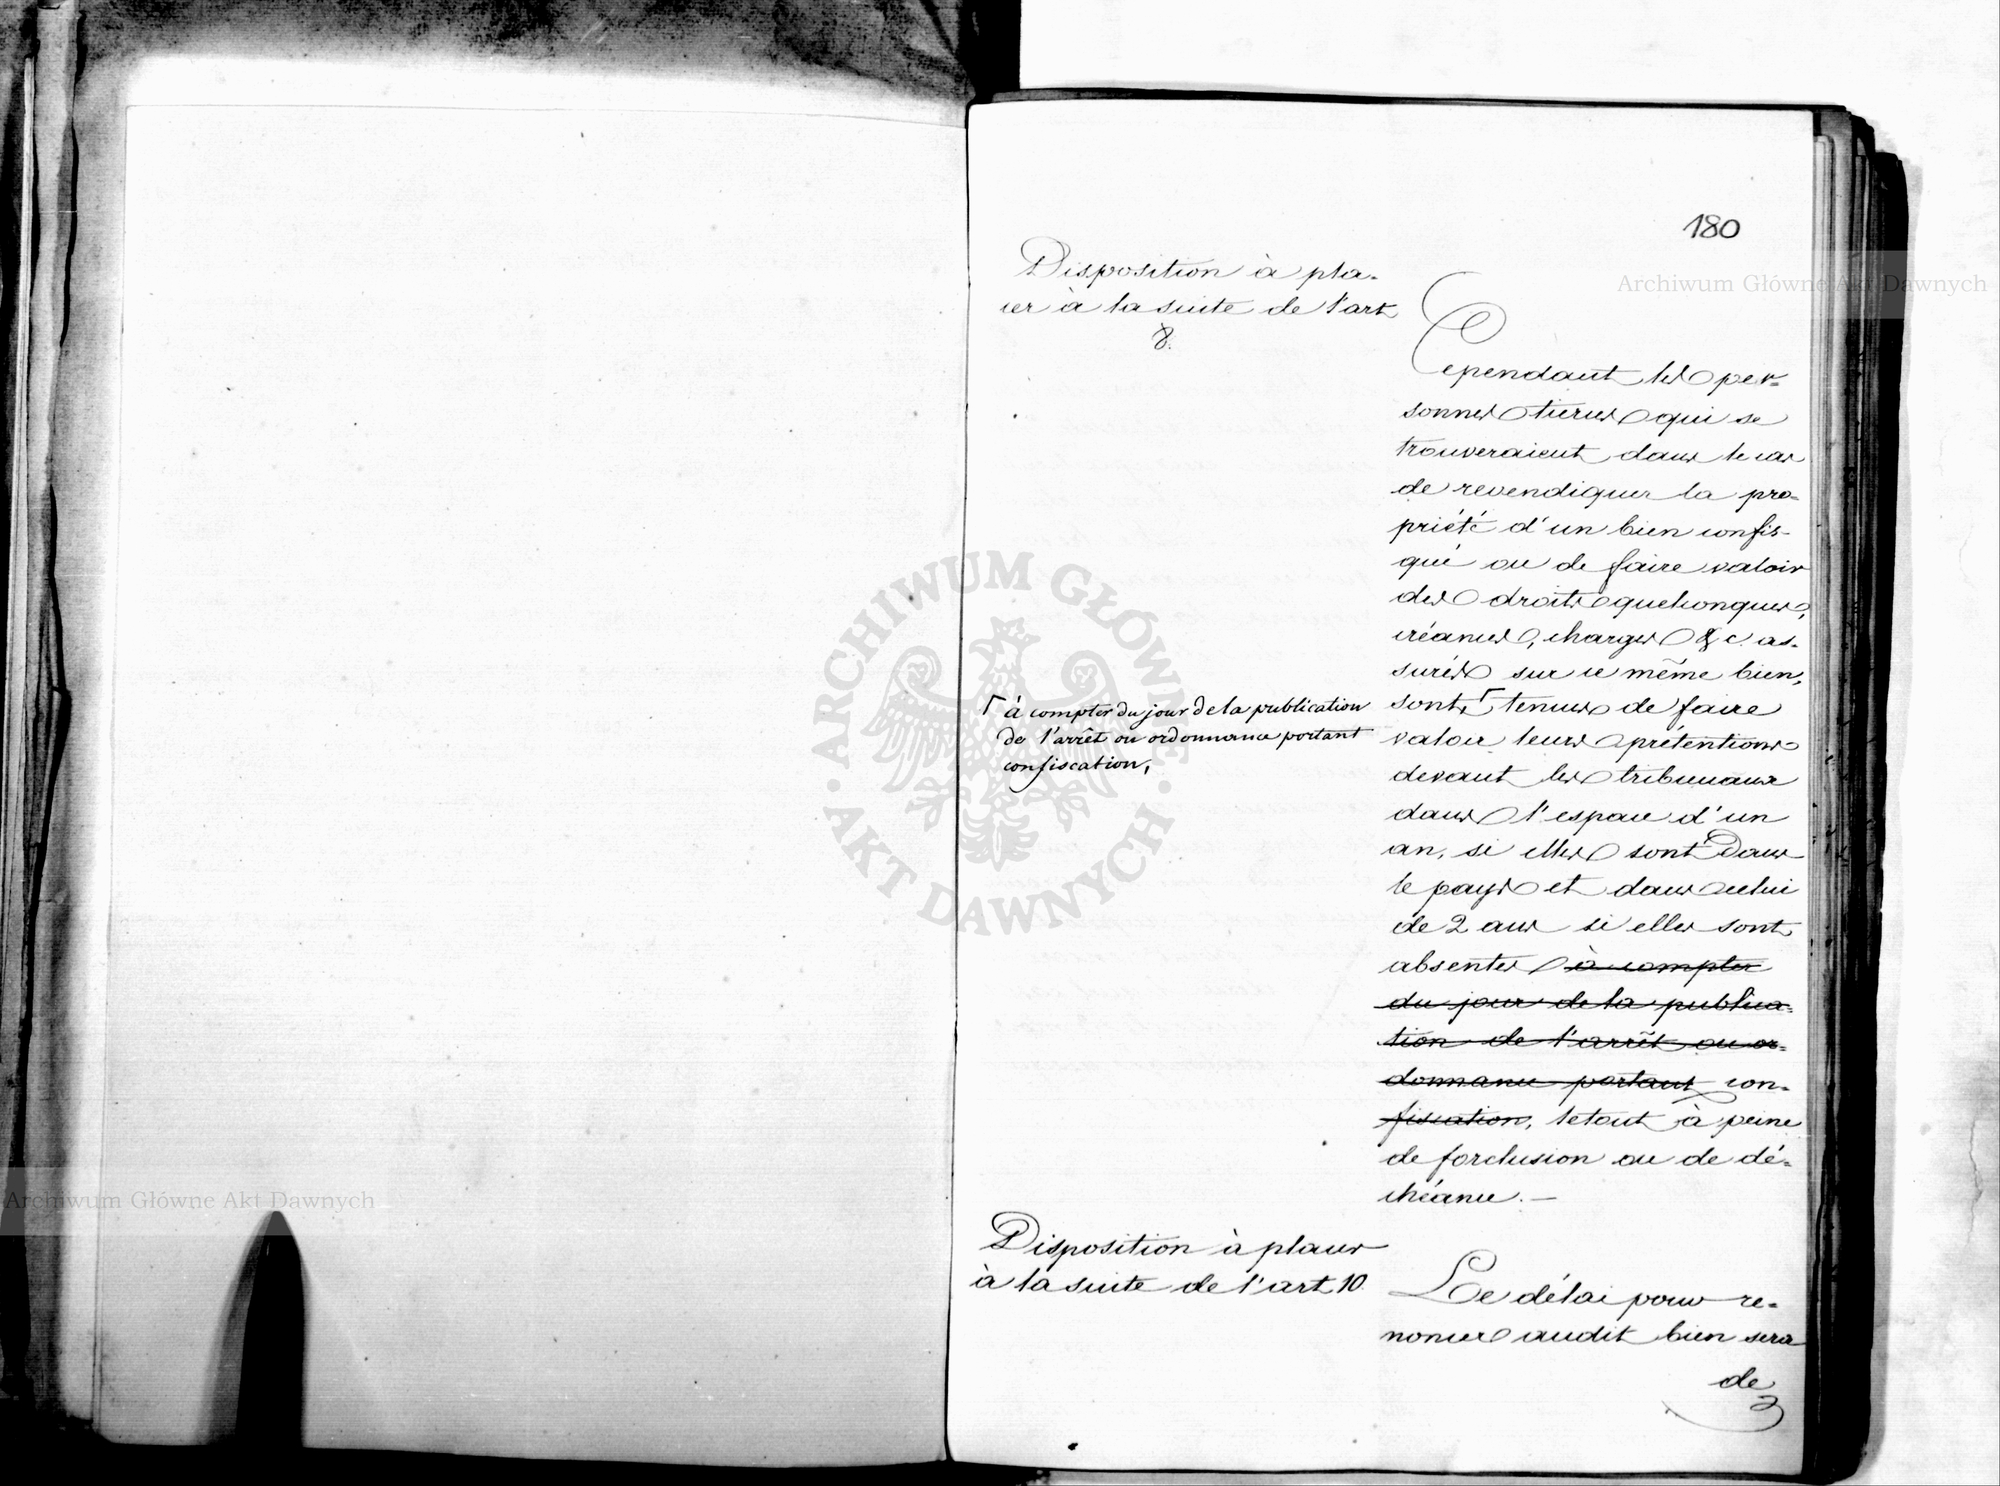 180
Disposition à pla-
cer à la suite de l'art
8.
Cependant les per-
sonnes tierces qui se
trouveraient dans le cas
de revendiquer la pro-
priété d'un bien confis-
qué ou de faire valoir
des droits quelconques,
créances, charges &c. as-
surés sur ce même bien,
sont, ⌈ tenues de faire
valoir leurs prétentions
devant les tribunaux
dans l'espace d'un
an, si elles sont dans
le pays et dans celui
de 2 ans si elles sont
absentes à compter
du jour de la publica-
tion de l'arrêt ou or-
donnance portant con-
fiscation, le tout à peine
de forclusion ou de dé-
chéance. —
⌈ à compter du jour de la publication
de l'arrêt ou ordonnance portant
confiscation,
Disposition à placer
à la suite de l'art 10.
Le délai pour re-
noncer audit bien sera
de
Archiwum Główne Akt Dawnych
Archiwum Główne Akt Dawnych
ARCHIWUM GŁÓWNE
AKT DAWNYCH